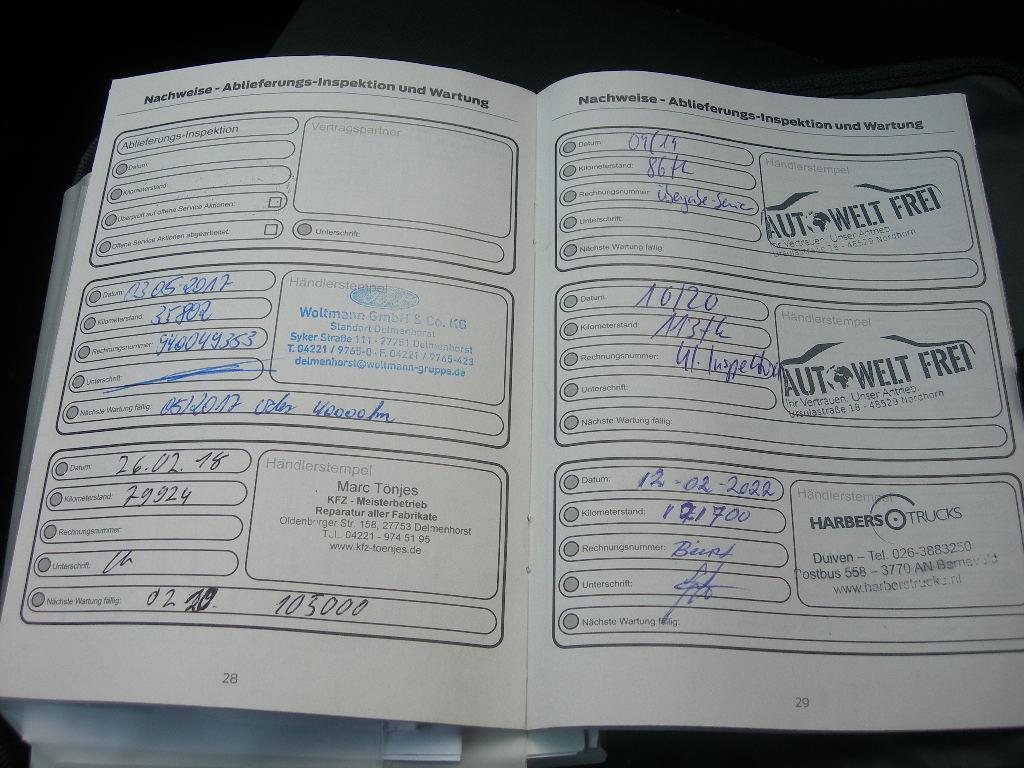 Nachweise - Ablieferungs-Inspektion und Wartung
Ablieferungs-Inspektion
Datum:
Kilometerstand
Überprüft auf offene Service Aktionen:
Offene Service Aktionen abgearbeitet:
Vertragspartner
Unterschrift:
Datum: 23.05.2017
Kilometerstand: 35802
Rechnungsnummer: 940049353
Unterschrift:
Nächste Wartung fällig: 05/2017 oder 40000km
Händlerstempel
Ford
Woltmann GmbH & Co. KG
Standort Delmenhorst
Syker Straße 111 · 27751 Delmenhorst
T. 04221 / 9765-0 · F. 04221 / 9765-423
delmenhorst@woltmann-gruppe.de
Datum: 26.02.18
Kilometerstand: 79924
Rechnungsnummer:
Unterschrift:
Nächste Wartung fällig: 02 20. 103000
Händlerstempel
Marc Tönjes
KFZ - Meisterbetrieb
Reparatur aller Fabrikate
Oldenburger Str. 158, 27753 Delmenhorst
Tel. 04221 - 974 51 95
www.kfz-toenjes.de
28
Nachweise - Ablieferungs-Inspektion und Wartung
Datum: 04/19
Kilometerstand: 86tk
Rechnungsnummer: Übergabe-Service
Unterschrift:
Nächste Wartung fällig:
Händlerstempel
AUTOWELT FREI
Ihr Vertrauen. Unser Antrieb.
Ursulastraße 18 - 48529 Nordhorn
Datum: 10/20
Kilometerstand: 113tk
Rechnungsnummer: Kl. Inspektion
Unterschrift:
Nächste Wartung fällig:
Händlerstempel
AUTOWELT FREI
Ihr Vertrauen. Unser Antrieb.
Ursulastraße 18 - 48529 Nordhorn
Datum: 12-02-2022
Kilometerstand: 121700
Rechnungsnummer:
Unterschrift:
Nächste Wartung fällig:
Händlerstempel
HARBERS TRUCKS
Duiven - Tel. 026-3883250
Postbus 558 - 3770 AN Barneveld
www.harberstrucks.nl
29